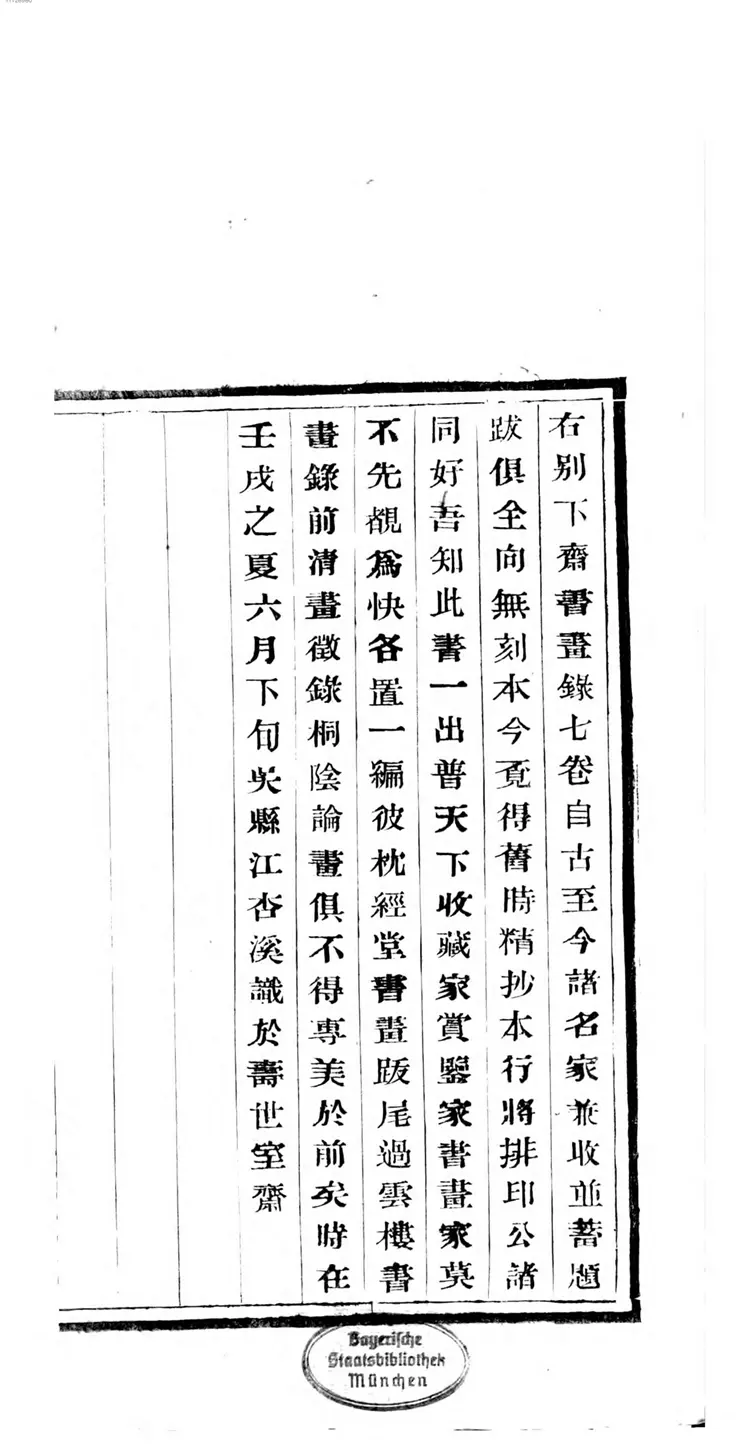 右別下齋書畫錄七卷自古至今諸名家兼收並蓄題
跋俱全向無刻本今覓得舊時精抄本行將排印公諸
同好吾知此書一出普天下收藏家賞鑒家書畫家莫
不先覩爲快各置一編彼枕經堂書畫跋尾過雲樓書
畫錄前清畫徵錄桐陰論畫俱不得專美於前矣時在
壬戌之夏六月下旬吳縣江杏溪識於壽世室齋
Bayerische
Staatsbibliothek
München